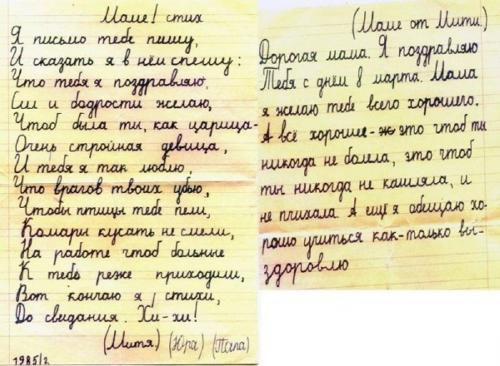 Маме! стих
Я письмо тебе пишу,
И сказать я в нём спешу:
Что тебя я поздравляю,
Сил и бодрости желаю,
Чтоб была ты, как царица-
Очень стройная девица,
И тебя я так люблю,
Что врагов твоих убью,
Чтобы птицы тебе пели,
Комары кусать не смели,
На работе чтоб больные
К тебе реже приходили,
Вот кончаю я стихи,
До свидания. Хи-хи!
(Митя) (Юра) (Папа)
1985 г.
(Маме от Мити.)
Дорогая мама. Я поздравляю
Тебя с днём 8 марта. Мама
я желаю тебе всего хорошего.
А всё хорошее - это чтоб ты
никогда не болела, это чтоб
ты никогда не кашляла, и
не чихала. А ещё я обещаю хо-
рошо учиться как-только вы-
здоровлю